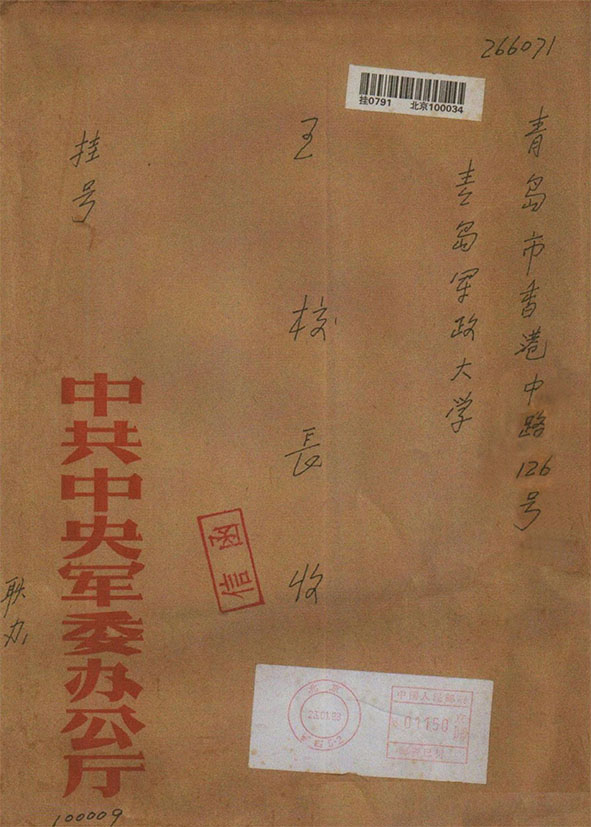 266071
青岛市香港中路126号
青岛军政大学
王校長收
挂号
挂0791 北京100034
信函
中共中央军委办公厅
联办
100009
北京
中国人民邮政
01150